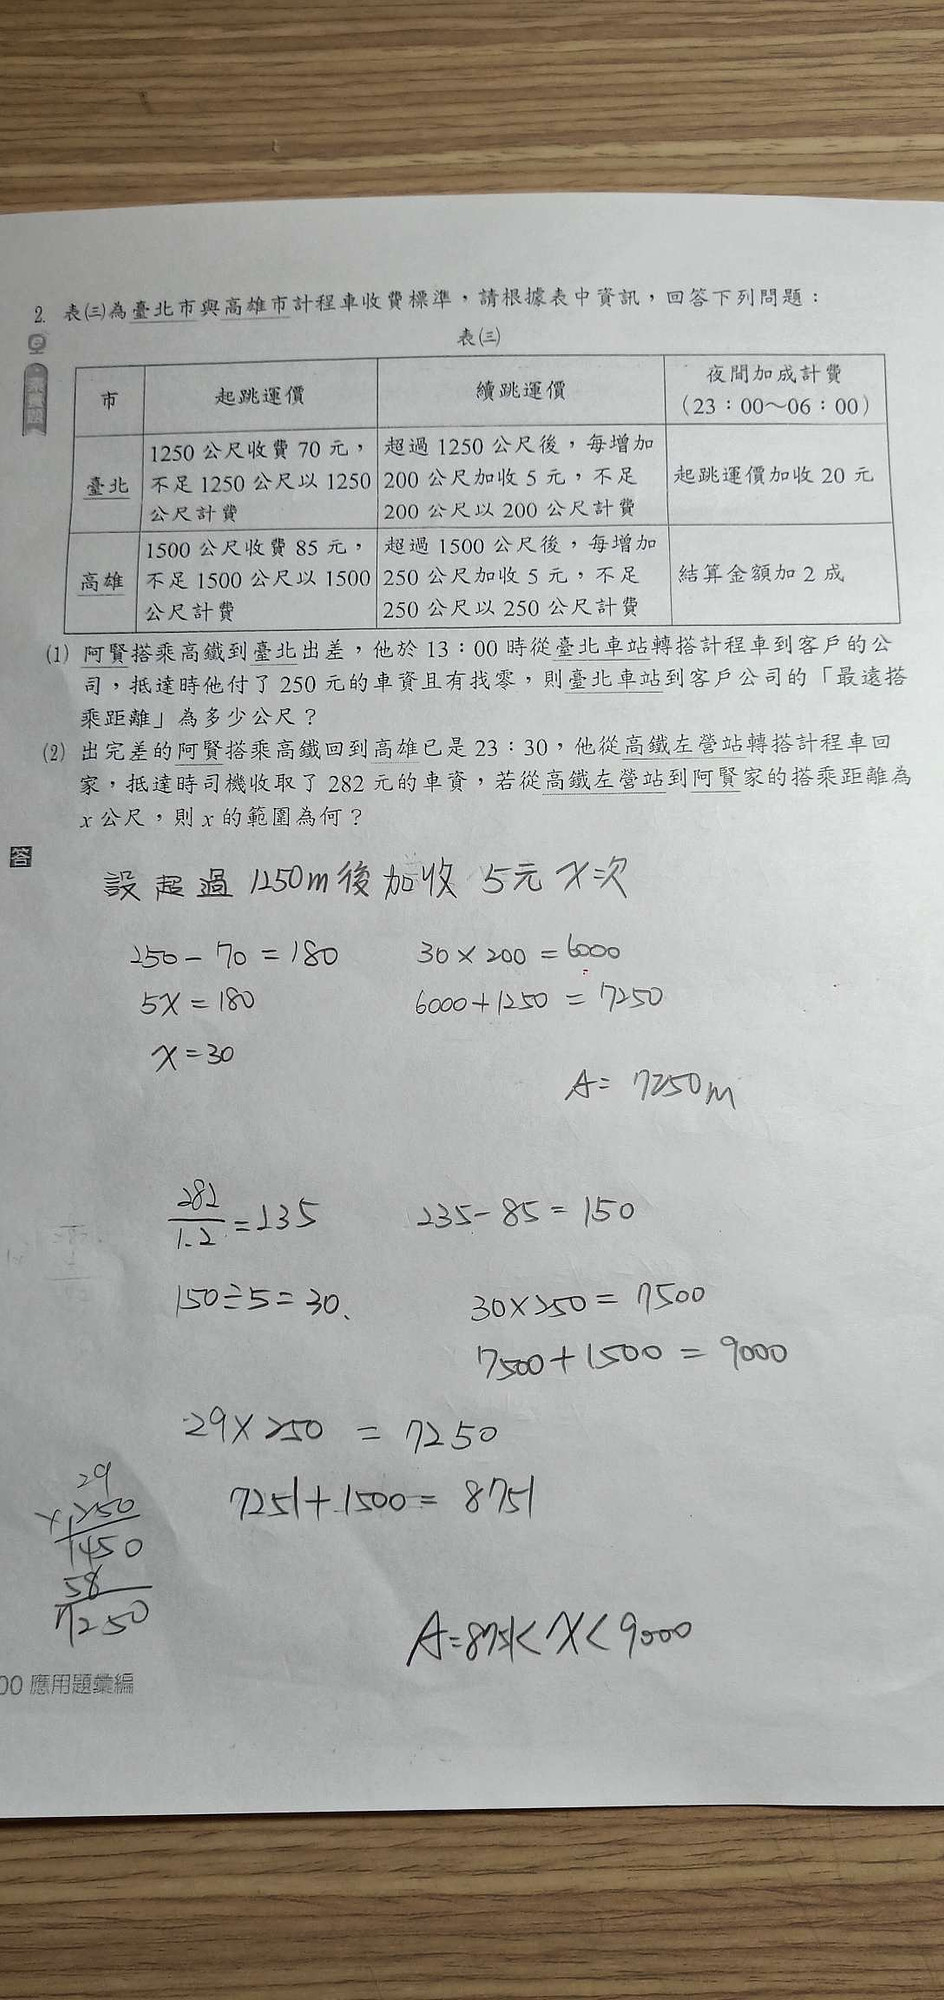 2. 表(三)為臺北市與高雄市計程車收費標準，請根據表中資訊，回答下列問題：
表(三)
市 起跳運價 續跳運價 夜間加成計費（23：00～06：00）
臺北 1250 公尺收費 70 元，不足 1250 公尺以 1250 公尺計費 超過 1250 公尺後，每增加 200 公尺加收 5 元，不足 200 公尺以 200 公尺計費 起跳運價加收 20 元
高雄 1500 公尺收費 85 元，不足 1500 公尺以 1500 公尺計費 超過 1500 公尺後，每增加 250 公尺加收 5 元，不足 250 公尺以 250 公尺計費 結算金額加 2 成
(1) 阿賢搭乘高鐵到臺北出差，他於 13：00 時從臺北車站轉搭計程車到客戶的公
司，抵達時他付了 250 元的車資且有找零，則臺北車站到客戶公司的「最遠搭
乘距離」為多少公尺？
(2) 出完差的阿賢搭乘高鐵回到高雄已是 23：30，他從高鐵左營站轉搭計程車回
家，抵達時司機收取了 282 元的車資，若從高鐵左營站到阿賢家的搭乘距離為
x 公尺，則 x 的範圍為何？
答
設超過 1250m 後加收 5元 x次
250 - 70 = 180
30 × 200 = 6000
5x = 180
6000 + 1250 = 7250
x = 30
A = 7250m
282/1.2 = 235
235 - 85 = 150
150 ÷ 5 = 30
30 × 250 = 7500
7500 + 1500 = 9000
29 × 250 = 7250
7251 + 1500 = 8751
29
× 250
1450
58
7250
A = 8751 < x < 9000
00 應用題彙編